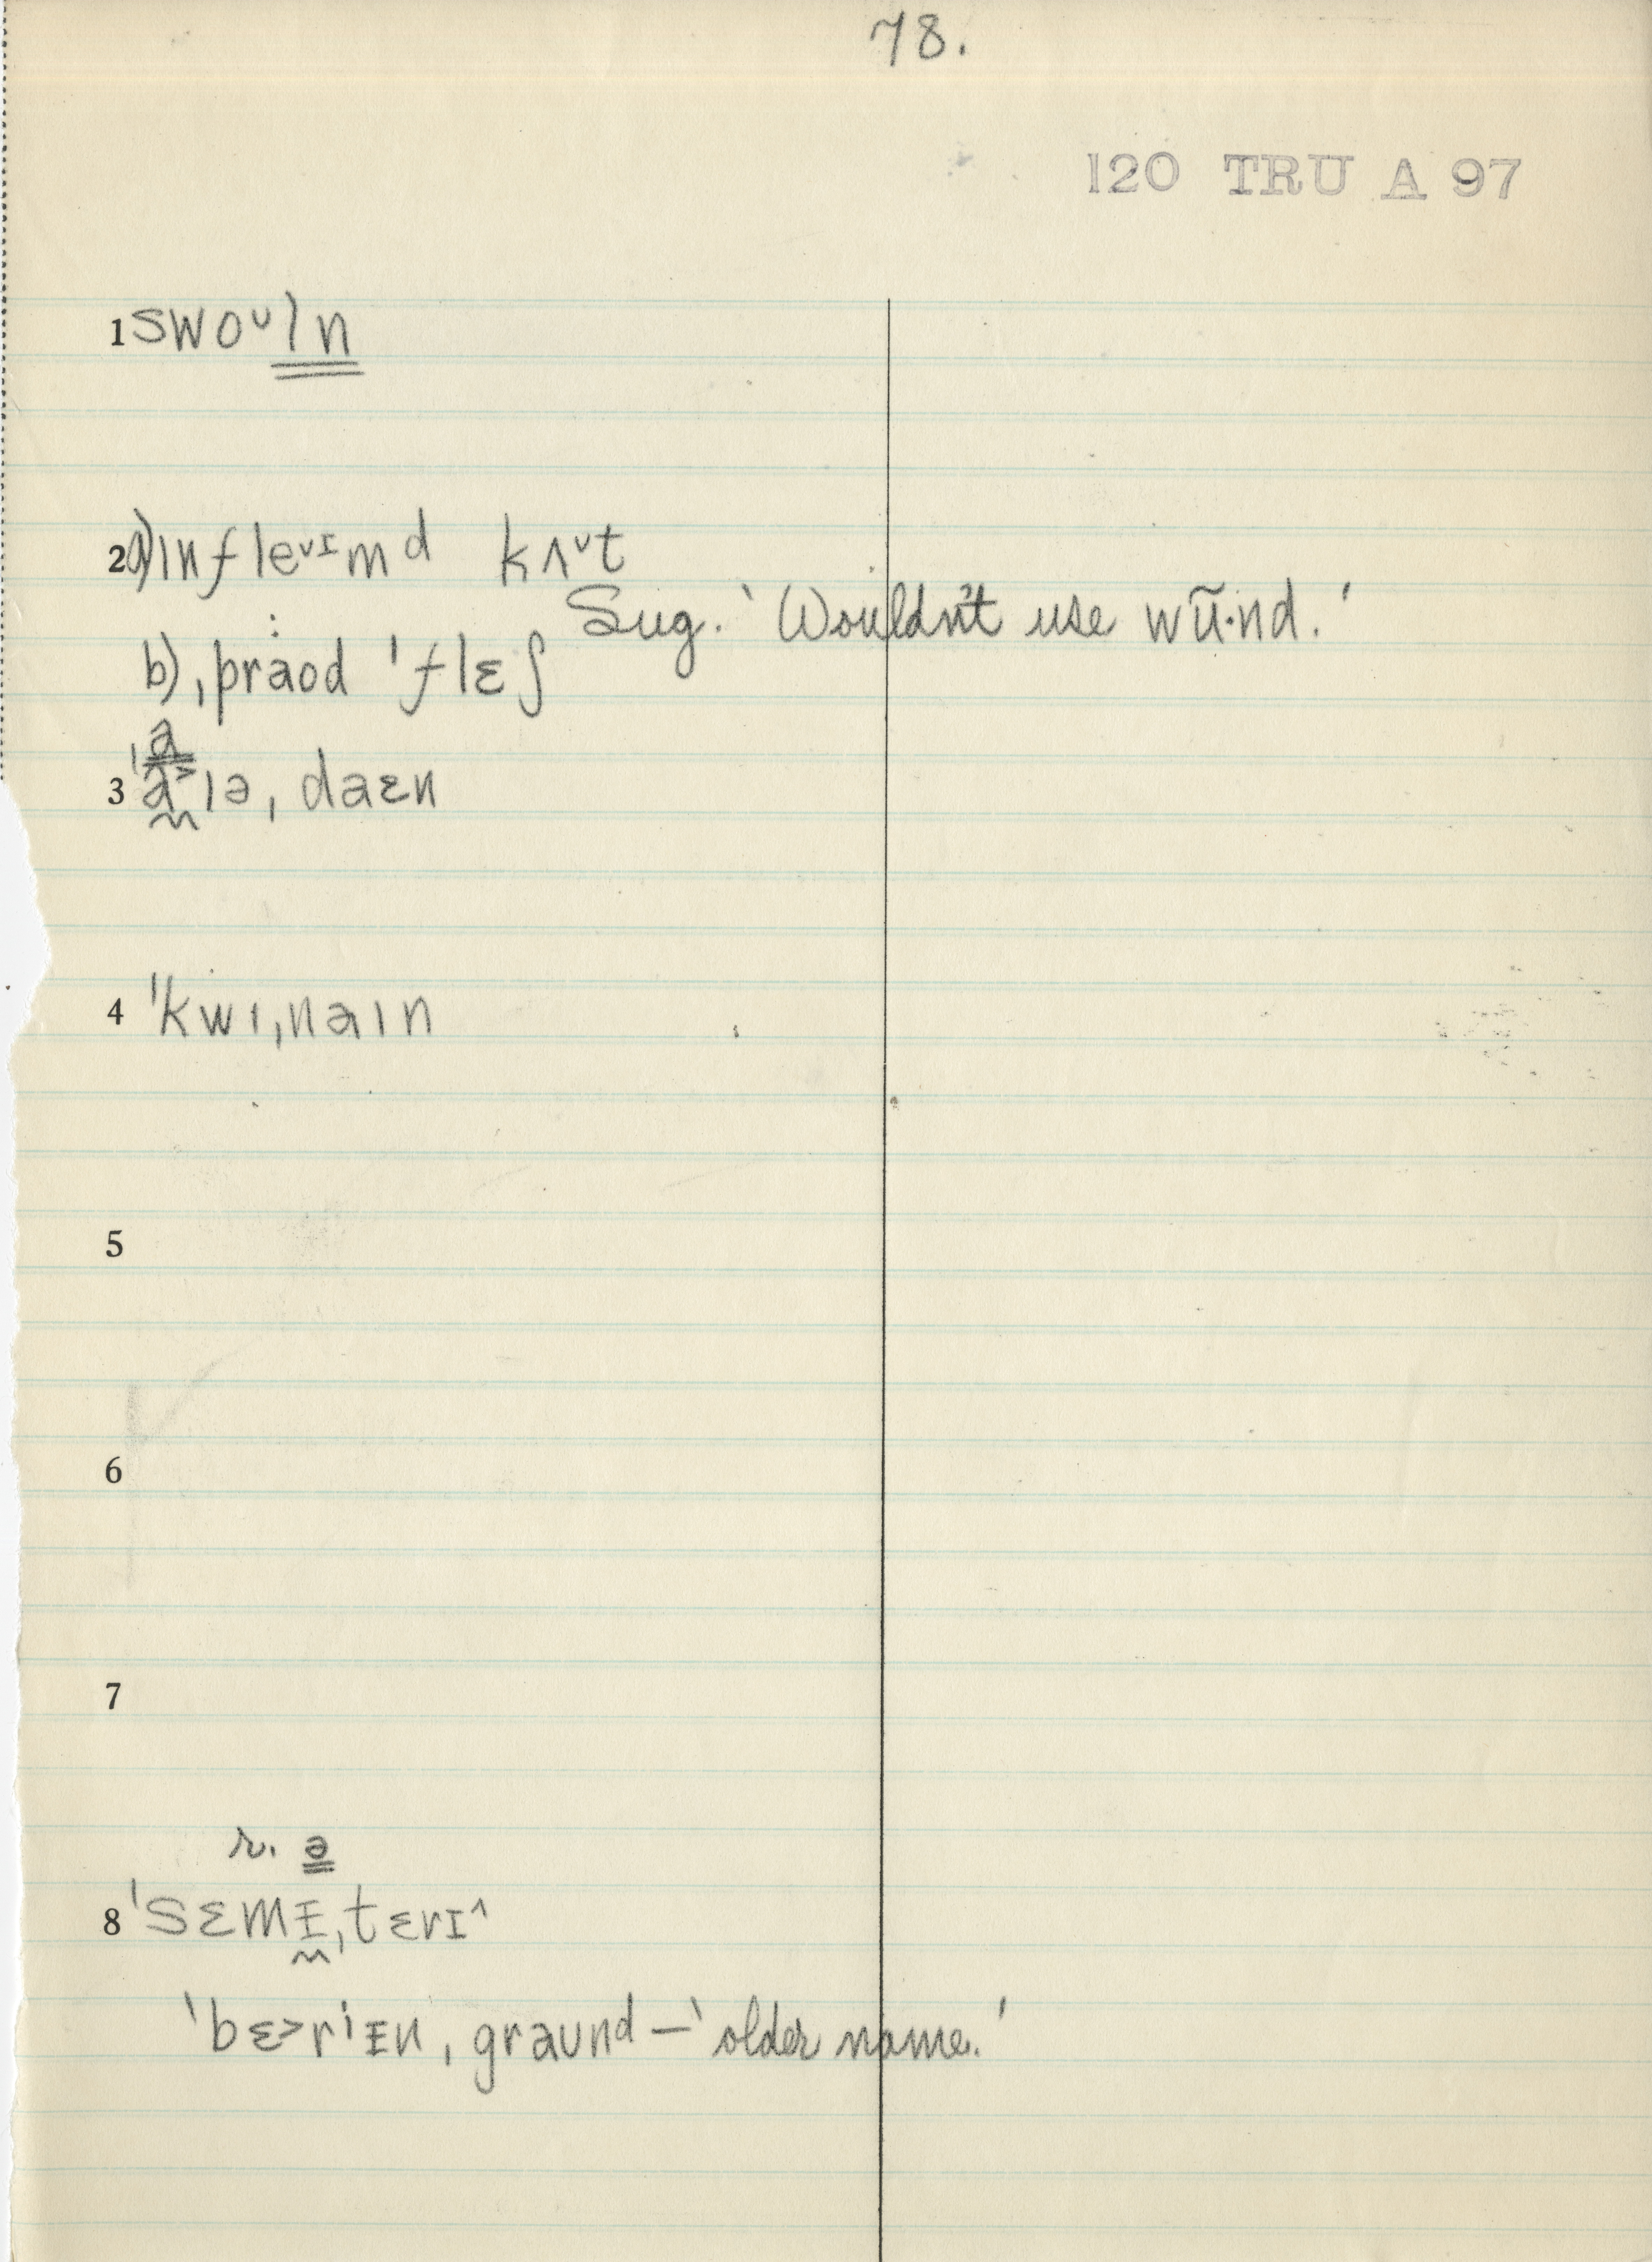 78.
120 TRU A 97
1 swoᵘln
2 a) ɪnfleᵛᴵmd kʌᵛt
Sug. ‘Wouldn't use wū·nd.’
b) ˌpraod ˈflɛʃ
a
3 ˈa˃ɪəˌdaɛn
4 ˈkwɪˌnaɪn
5
6
7
r. ə
8 ˈsɛmɪˌtɛrɪ^
ˈbɛ˃rⁱɪnˌgraund – ‘older name.’